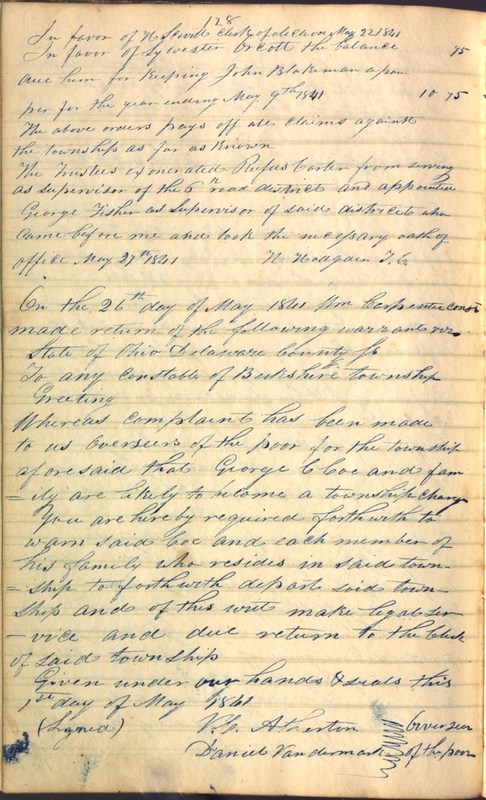 128
In favor of N Sevill Clerk of election May 22 1841 75
In favor of Sylvester Orcott the balance
due him for keeping John Blakeman a pau
per for the year ending May 9th 1841 10 75
The above orders pays off all claims against
the township as far as known
The Trustees exonerated Rufus Carter from serving
as Supervisor of the 6th road district and appointed
George Fisher as Supervisor of said district who
came before me and took the necessary oath of
office May 27th 1841 N Hodgain T. C.
On the 26th day of May 1841 Wm Carpenter Const
made return of the following warrant viz
State of Ohio Delaware County Ss
To any Constable of Berkshire township
Greeting
Whereas complaint has been made
to us Overseers of the poor for the township
aforesaid that George C Coe and fam
=ily are likely to become a township charge
You are hereby required forthwith to
warn said Coe and each member of
his family who resides in said town-
=ship to forthwith depart said town-
ship and of this writ make legal ser
-vice and due return to the Clerk
of said township
Given under our hands & seals this
1st day of May 1841
(Signed) V. C. Atherton Overseer
Daniel Vandermark of the poor